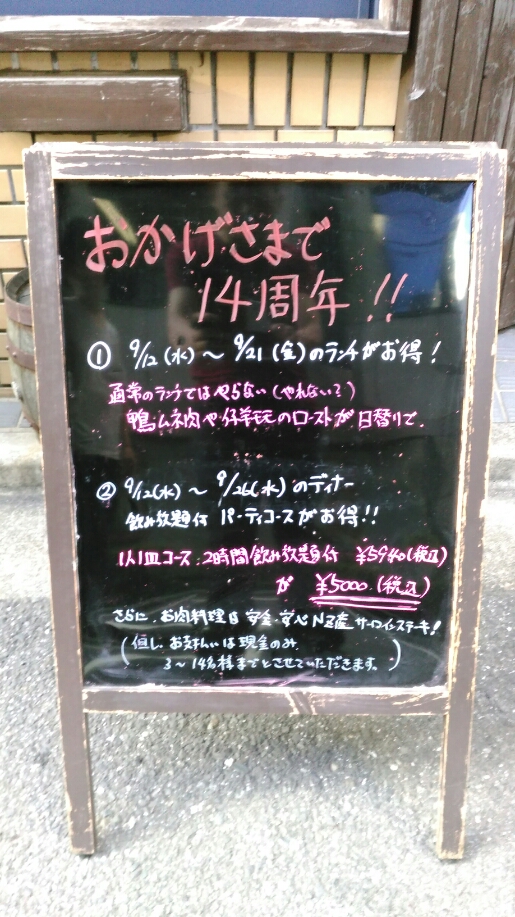 おかげさまで
14周年!!
① 9/12(水)～9/21(金)のランチがお得!
通常のランチではやらない(やれない?)
鴨ムネ肉や仔羊モモのローストが日替りで、
② 9/12(水)～9/26(水)のディナー
飲み放題付 パーティコースがお得!!
1人1皿コース、2時間飲み放題付 ¥5940(税込)
が ¥5000(税込)
さらに、お肉料理は安全・安心NZ産サーロインステーキ!
(但し、お支払いは現金のみ、
3～14名様までとさせていただきます。)